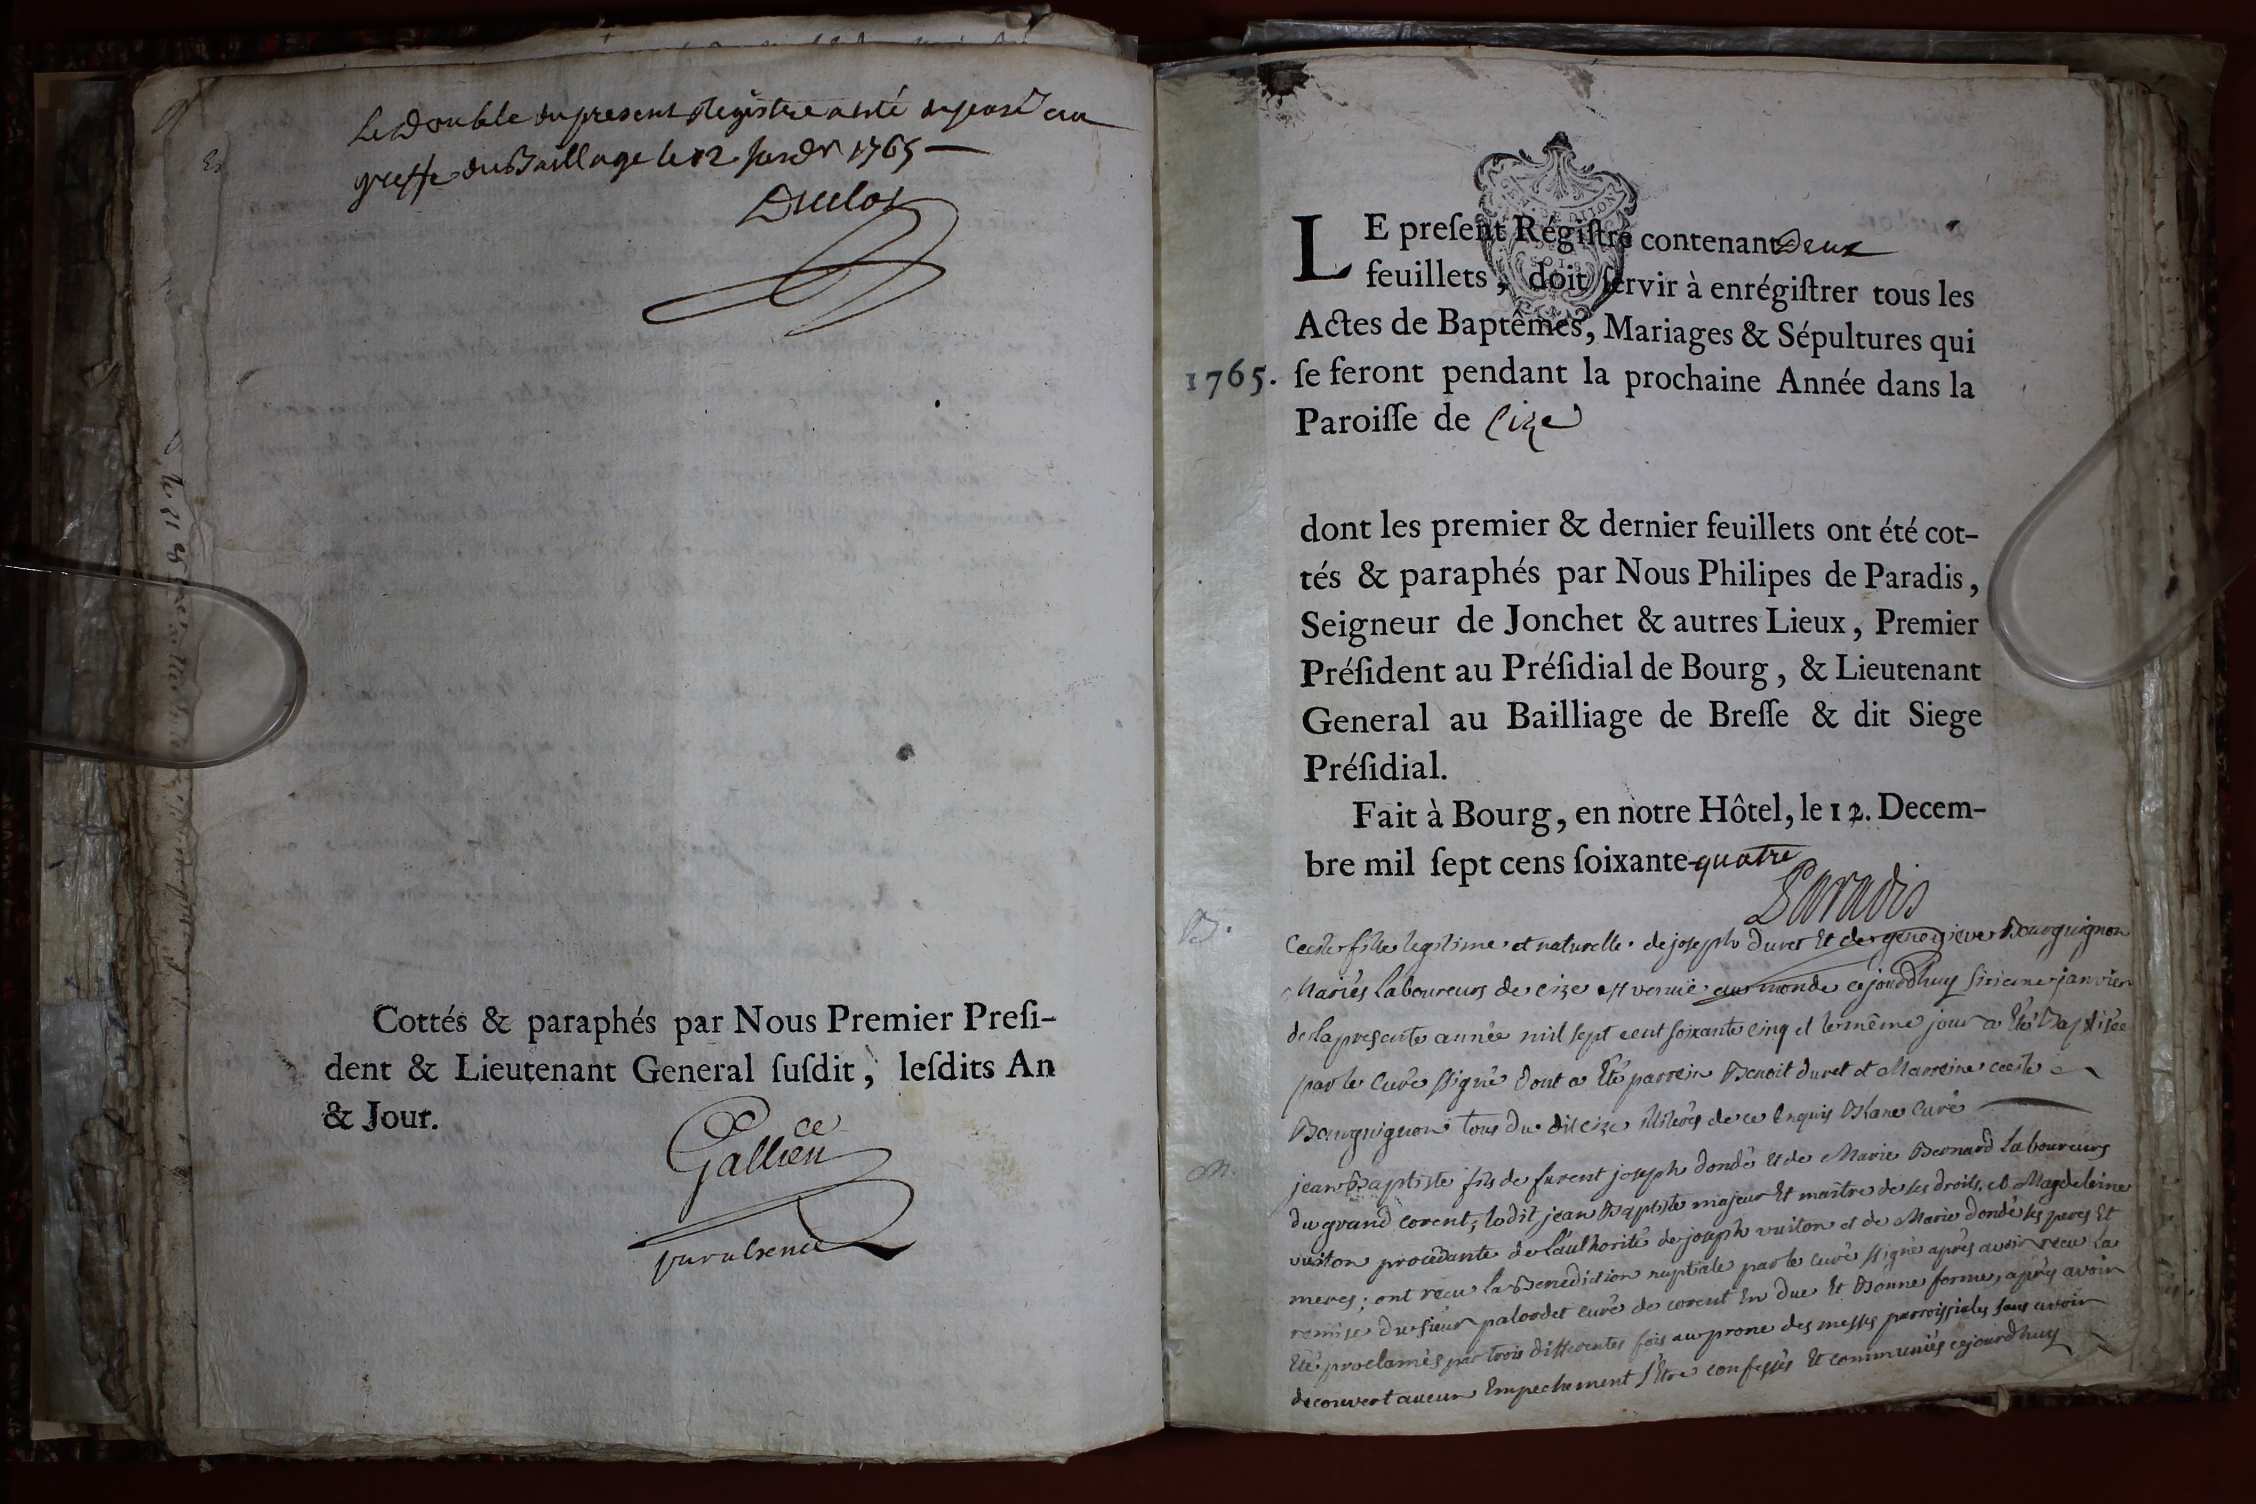 Le Double du present Registre a eté deposé au
greffe du Baillage le 12 Janvr 1765
Duclos
Cottés & paraphés par Nous Premier Preſi-
dent & Lieutenant General ſuſdit, leſdits An
& Jour.
Gallien
par absence
LE preſent Régiſtre contenant Deux
feuillets, doit ſervir à enrégiſtrer tous les
Actes de Baptêmes, Mariages & Sépultures qui
1765. ſe feront pendant la prochaine Année dans la
Paroiſſe de Cize
dont les premier & dernier feuillets ont été cot-
tés & paraphés par Nous Philipes de Paradis,
Seigneur de Jonchet & autres Lieux, Premier
Préſident au Préſidial de Bourg, & Lieutenant
General au Bailliage de Breſſe & dit Siege
Préſidial.
Fait à Bourg, en notre Hôtel, le 12. Decem-
bre mil ſept cens ſoixante-quatre
Paradis
B.
Cecile fille legitime et naturelle de joseph duret Et de genevieve Bourguignon
Mariés Laboureurs de cize est venue au monde cejourdhuy sixieme janvier
de la presente année mil sept cent soixante cinq et le même jour a Eté Baptisée
par le Curé signé dont a Eté parrein Benoit duret et Marreine cecile
Bourguignon tous du dit cize illiterés de ce Enquis Curé
M.
jean Baptiste fils de furent joseph dondé et de Marie Bernard Laboureurs
du grand corent, ledit jean Baptiste majeur Et maitre de ses droits, et Magdeleine
vuiton procedante de l'authorité de joseph vuiton et de Marie dondé ses peres Et
meres; ont reçu la Benediction nuptiale par le curé signé après avoir reçu la
remise du sieur palordet curé de corent En due Et Bonne forme, après avoir
Eté proclamés par trois differentes fois au prone des messes parroissiales sans avoir
decouvert aucun Empechement s'Etre confessés Et communiés cejourdhuy